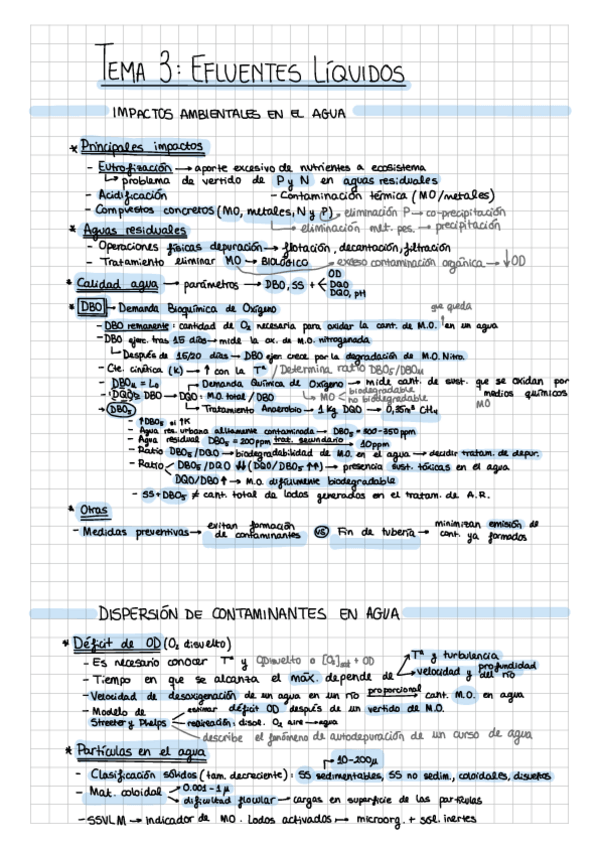 TEMA 3: EFLUENTES LÍQUIDOS
IMPACTOS AMBIENTALES EN EL AGUA
* Principales impactos
- Eutrofización → aporte excesivo de nutrientes a ecosistema
↳ problema de vertido de P y N en aguas residuales
- Acidificación - Contaminación térmica (MO/metales)
- Compuestos concretos (MO, metales, N y P) → eliminación P → co-precipitación
→ eliminación met. pes. → precipitación
* Aguas residuales
- Operaciones físicas depuración → flotación, decantación, filtración
- Tratamiento eliminar MO → BIOLÓGICO → exceso contaminación orgánica → ↓OD
* Calidad agua → parámetros → DBO, SS + OD
DQO
DQO, pH
* DBO → Demanda Bioquímica de Oxígeno
que queda
- DBO remanente: cantidad de O₂ necesaria para oxidar la cant. de M.O. en un agua
- DBO ejerc. tras 15 días → mide la ox. de M.O. nitrogenada
↳ Después de 15/20 días → DBO ejer. crece por la degradación de M.O. Nitro.
- Cte. cinética (k) → ↑ con la Tª / Determina ratio DBO₅/DBOu
- DBOu = L₀
Demanda Química de Oxígeno → mide cant. de sust. que se oxidan por medios químicos
- DQO ≥ DBO → DQO: M.O. total / DBO → MO < biodegradable
no biodegradable MO
→ DBO₅ ↳ Tratamiento Anaerobio → 1 kg DQO → 0,35m³ CH₄
- ↑DBO₅ si ↑K
- Agua res. urbana altamente contaminada → DBO₅ = 300-350 ppm
- Agua residual DBO₅ = 200ppm trat. secundario → 10ppm
- Ratio DBO₅/DQO → biodegradabilidad de M.O. en el agua → decidir tratam. de depur.
- Ratio DBO₅/DQO ↓↓ (DQO/DBO₅ ↑↑) → presencia sust. tóxicas en el agua
DQO/DBO ↑ → M.O. difícilmente biodegradable
- SS + DBO₅ ≠ cant. total de lodos generados en el tratam. de A.R.
* Otras
- Medidas preventivas → evitan formación de contaminantes VS Fin de tubería → minimizan emisión de cont. ya formados
DISPERSIÓN DE CONTAMINANTES EN AGUA
* Déficit de OD (O₂ disuelto)
- Es necesario conocer Tª y O₂ disuelto o [O₂]sat + OD
- Tiempo en que se alcanza el máx. depende de Tª y turbulencia
velocidad y profundidad del río
- Velocidad de desoxigenación de un agua en un río proporcional → cant. M.O. en agua
- Modelo de Streeter y Phelps estimar déficit OD después de un vertido de M.O.
reaireación: disol. O₂ aire → agua
describe el fenómeno de autodepuración de un curso de agua
* Partículas en el agua
10-200μ
- Clasificación sólidos (tam. decreciente): SS sedimentables, SS no sedim., coloidales, disueltos
- Mat. coloidal → 0.001 - 1μ
dificultad flocular → cargas en superficie de las partículas
- SSVLM → indicador de MO. Lodos activados → microorg. + sól. inertes